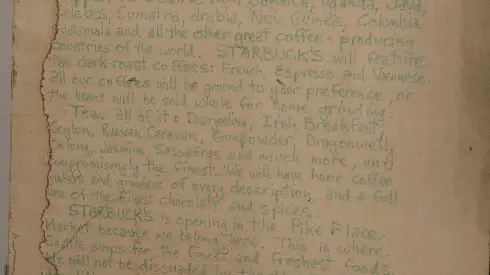 from Jamaica, Uganda, Java,
Celebes, Sumatra, Arabia, New Guinea, Colombia
Guatemala and all the other great coffee-producing
countries of the world. STARBUCK'S will feature
the dark roast coffees: French, Espresso and Viennese.
All our coffees will be ground to your preference, or
the beans will be sold whole for home grinding.
Tea, all of it: Darjeeling, Irish Breakfast,
Ceylon, Russian Caravan, Gunpowder, Dragonwell,
Oolong, Jasmine Sassafras and much more,
uncompromisingly the finest. We will have home coffee
makers and grinders of every description, and a full
line of the finest chocolate and spices.
STARBUCK'S is opening in the Pike Place
Market because we belong here. This is where
Seattle shops for the finest and freshest foods.
We will not be dissuaded by